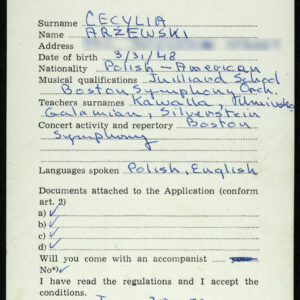 Surname CECYLIA
Name ARZEWSKI
Address
Date of birth 3/31/48
Nationality Polish - American
Musical qualifications Juilliard School
Boston Symphony Orch.
Teachers surnames Kawalla, Uminska,
Galamian, Silverstein
Concert activity and repertory Boston
Symphony
Languages spoken Polish, English
Documents attached to the Application (conform
art. 2)
a) ✓
b) ✓
c) ✓
d) ✓
Will you come with an accompanist
No*) ✓
I have read the regulations and I accept the
conditions.